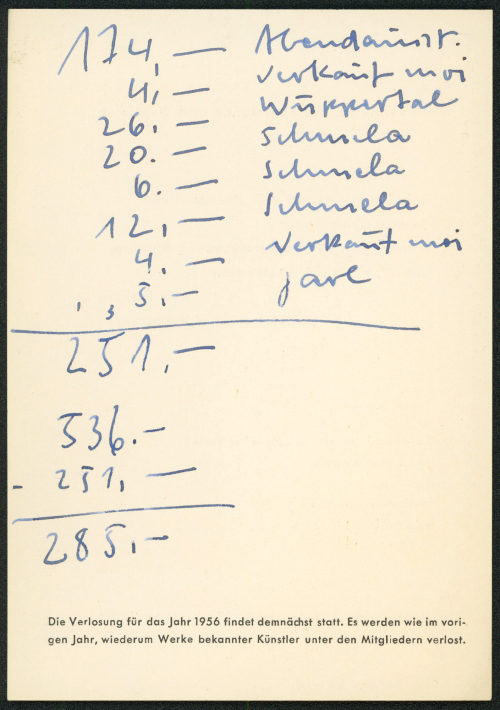 174,— Abendausst.
4,— verkauf moi
26.— Wuppertal
20.— Schmela
6.— Schmela
12,— Schmela
4.— Verkauf moi
5.— Jarl
251,—
536.—
- 251,—
285,—
Die Verlosung für das Jahr 1956 findet demnächst statt. Es werden wie im vori-
gen Jahr, wiederum Werke bekannter Künstler unter den Mitgliedern verlost.